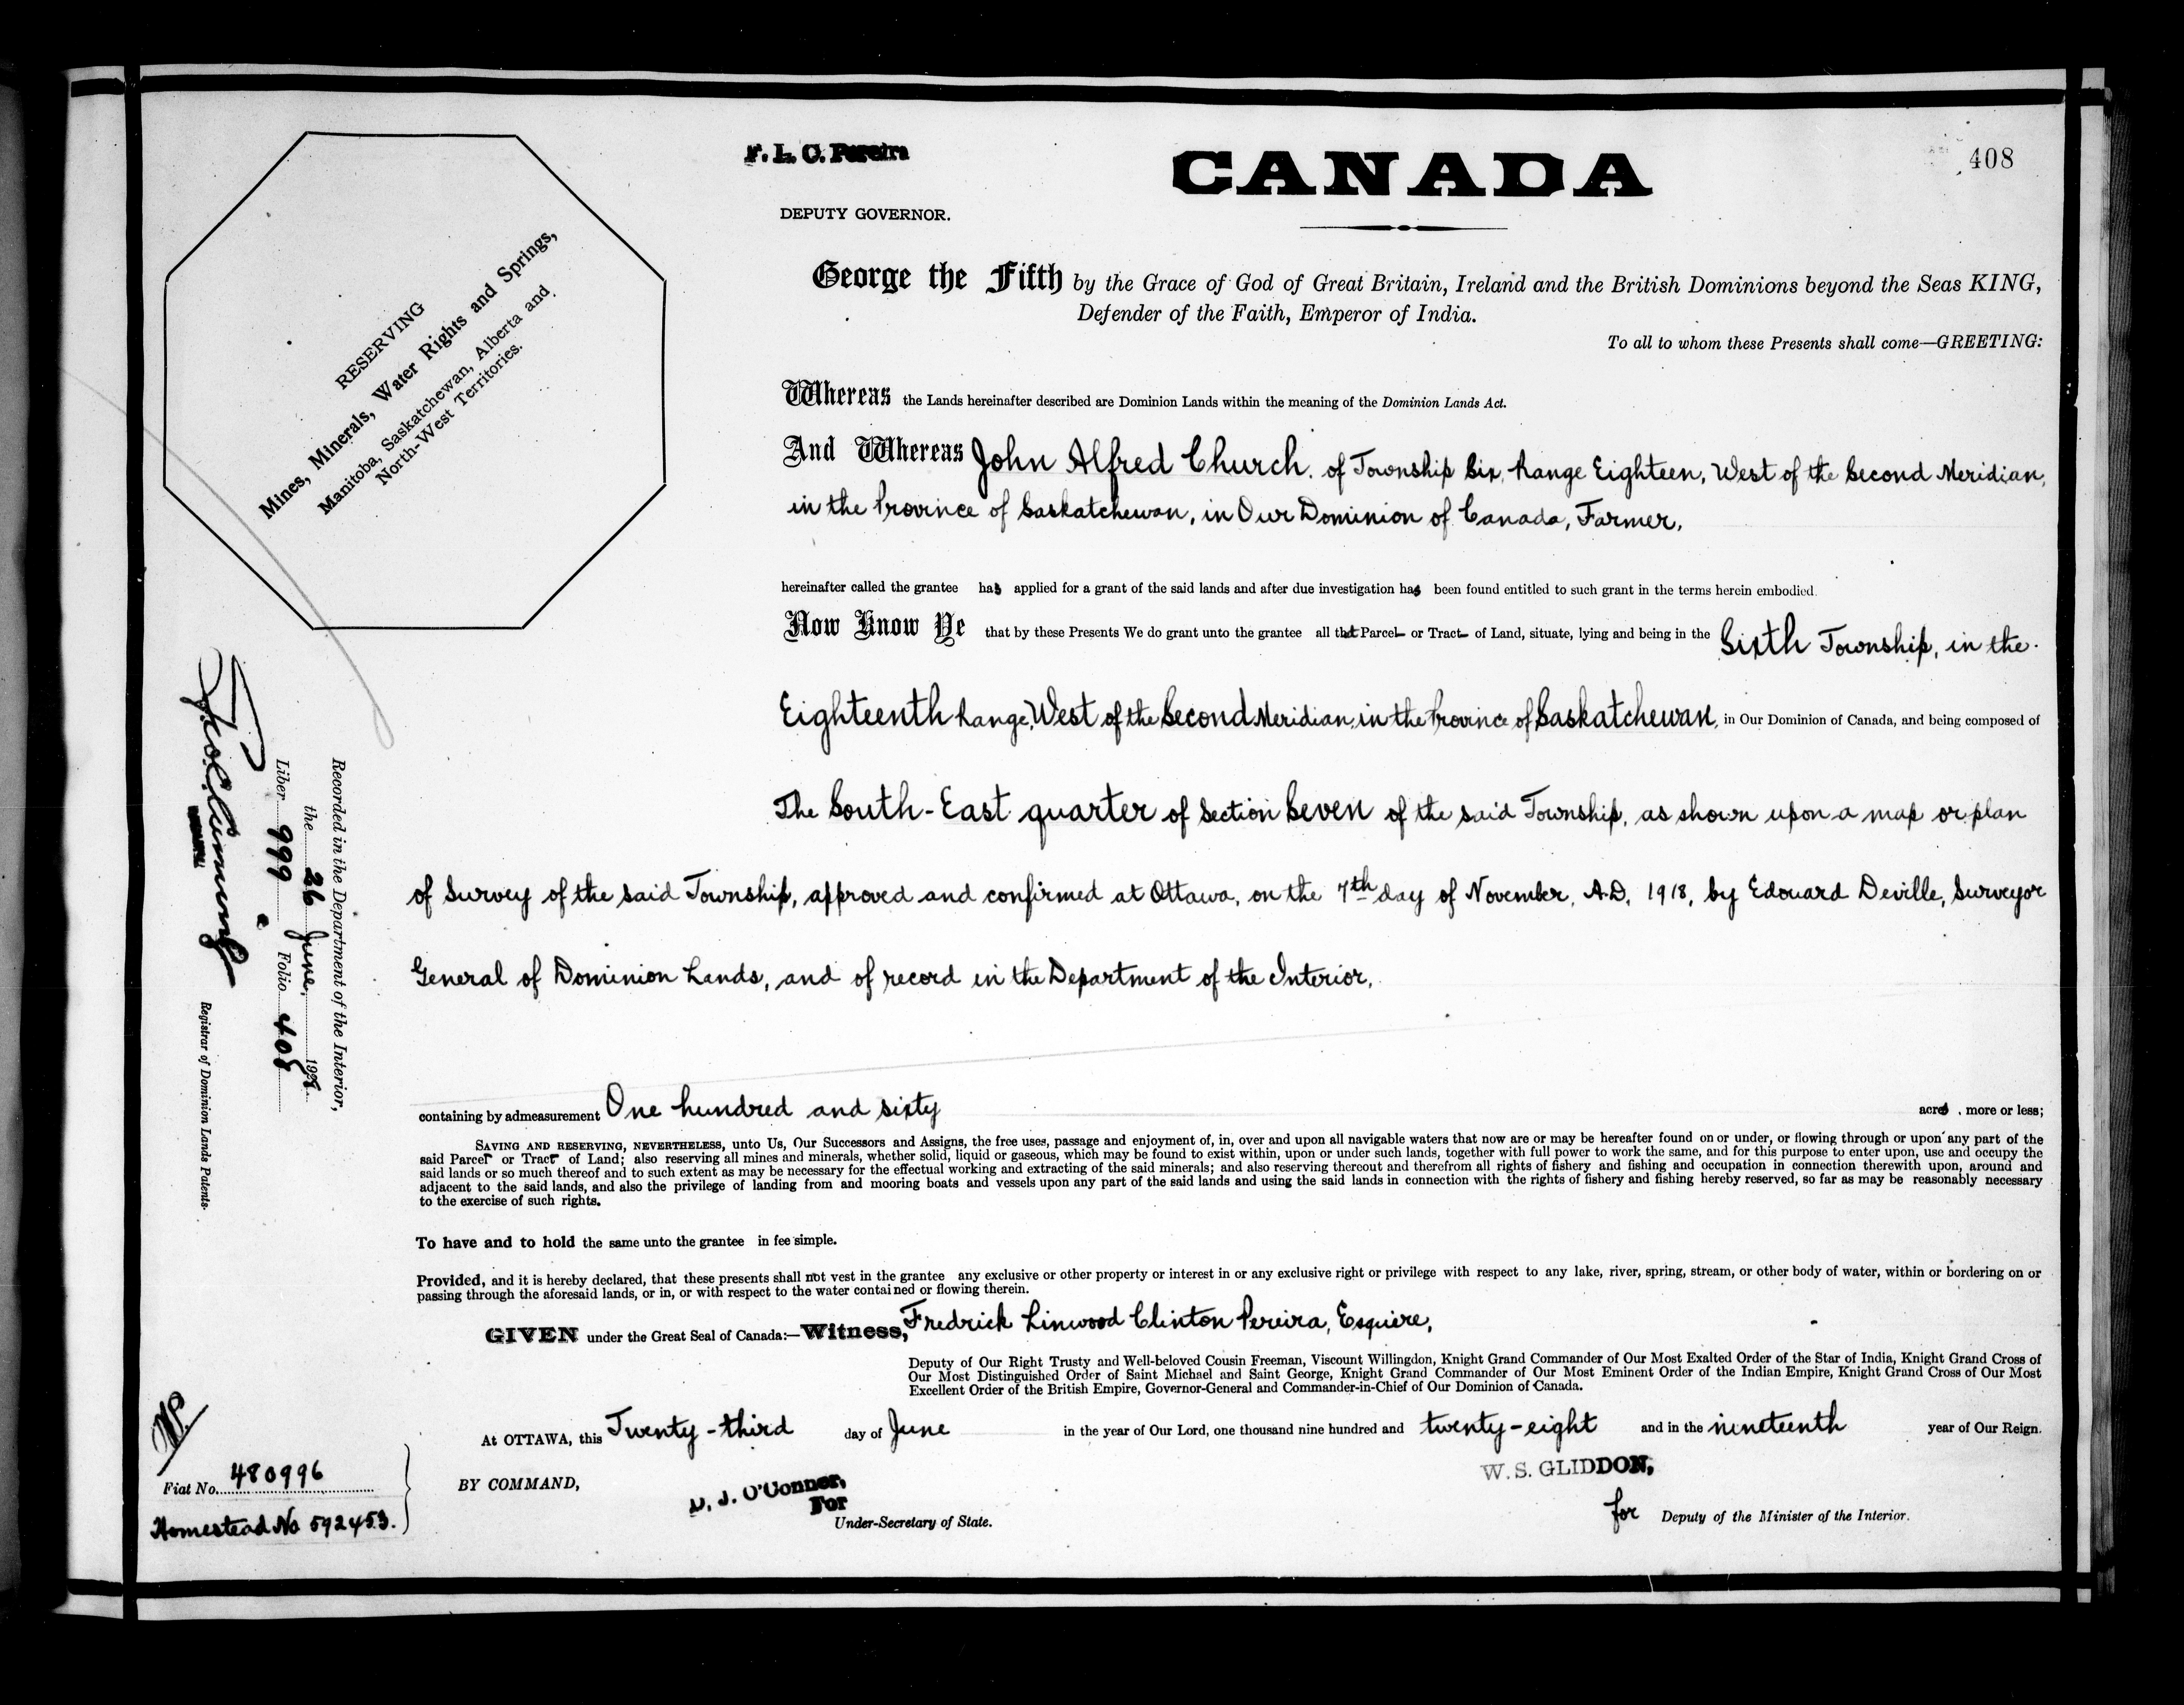 408
F. L. C. Pereira
CANADA
DEPUTY GOVERNOR.
RESERVING
Mines, Minerals, Water Rights and Springs,
Manitoba, Saskatchewan, Alberta and
North-West Territories.
George the Fifth by the Grace of God of Great Britain, Ireland and the British Dominions beyond the Seas KING,
Defender of the Faith, Emperor of India.
To all to whom these Presents shall come—GREETING:
Whereas the Lands hereinafter described are Dominion Lands within the meaning of the Dominion Lands Act.
And Whereas John Alfred Church, of Township Six, Range Eighteen, West of the Second Meridian,
in the Province of Saskatchewan, in Our Dominion of Canada, Farmer,
hereinafter called the grantee has applied for a grant of the said lands and after due investigation has been found entitled to such grant in the terms herein embodied.
Now Know Ye that by these Presents We do grant unto the grantee all that Parcel or Tract of Land, situate, lying and being in the Sixth Township, in the
Eighteenth Range, West of the Second Meridian, in the Province of Saskatchewan, in Our Dominion of Canada, and being composed of
The South-East quarter of Section Seven of the said Township, as shown upon a map or plan
of Survey of the said Township, approved and confirmed at Ottawa, on the 7th day of November, A.D. 1918, by Edouard Deville, Surveyor
General of Dominion Lands, and of record in the Department of the Interior,
containing by admeasurement One hundred and sixty acres, more or less;
SAVING AND RESERVING, NEVERTHELESS, unto Us, Our Successors and Assigns, the free uses, passage and enjoyment of, in, over and upon all navigable waters that now are or may be hereafter found on or under, or flowing through or upon any part of the
said Parcel or Tract of Land; also reserving all mines and minerals, whether solid, liquid or gaseous, which may be found to exist within, upon or under such lands, together with full power to work the same, and for this purpose to enter upon, use and occupy the
said lands or so much thereof and to such extent as may be necessary for the effectual working and extracting of the said minerals; and also reserving thereout and therefrom all rights of fishery and fishing and occupation in connection therewith upon, around and
adjacent to the said lands, and also the privilege of landing from and mooring boats and vessels upon any part of the said lands and using the said lands in connection with the rights of fishery and fishing hereby reserved, so far as may be reasonably necessary
to the exercise of such rights.
To have and to hold the same unto the grantee in fee simple.
Provided, and it is hereby declared, that these presents shall not vest in the grantee any exclusive or other property or interest in or any exclusive right or privilege with respect to any lake, river, spring, stream, or other body of water, within or bordering on or
passing through the aforesaid lands, or in, or with respect to the water contained or flowing therein.
GIVEN under the Great Seal of Canada:—Witness, Fredrick Linwood Clinton Pereira, Esquire,
Deputy of Our Right Trusty and Well-beloved Cousin Freeman, Viscount Willingdon, Knight Grand Commander of Our Most Exalted Order of the Star of India, Knight Grand Cross of
Our Most Distinguished Order of Saint Michael and Saint George, Knight Grand Commander of Our Most Eminent Order of the Indian Empire, Knight Grand Cross of Our Most
Excellent Order of the British Empire, Governor-General and Commander-in-Chief of Our Dominion of Canada.
At OTTAWA, this Twenty-third day of June in the year of Our Lord, one thousand nine hundred and twenty-eight and in the nineteenth year of Our Reign.
BY COMMAND,
D. J. O'Connor,
For
Under-Secretary of State.
W. S. GLIDDON,
for Deputy of the Minister of the Interior.
Recorded in the Department of the Interior,
the 26 June, 1928.
Liber 999 Folio 408
Registrar of Dominion Lands Patents.
Fiat No. 480996
Homestead No 592453.